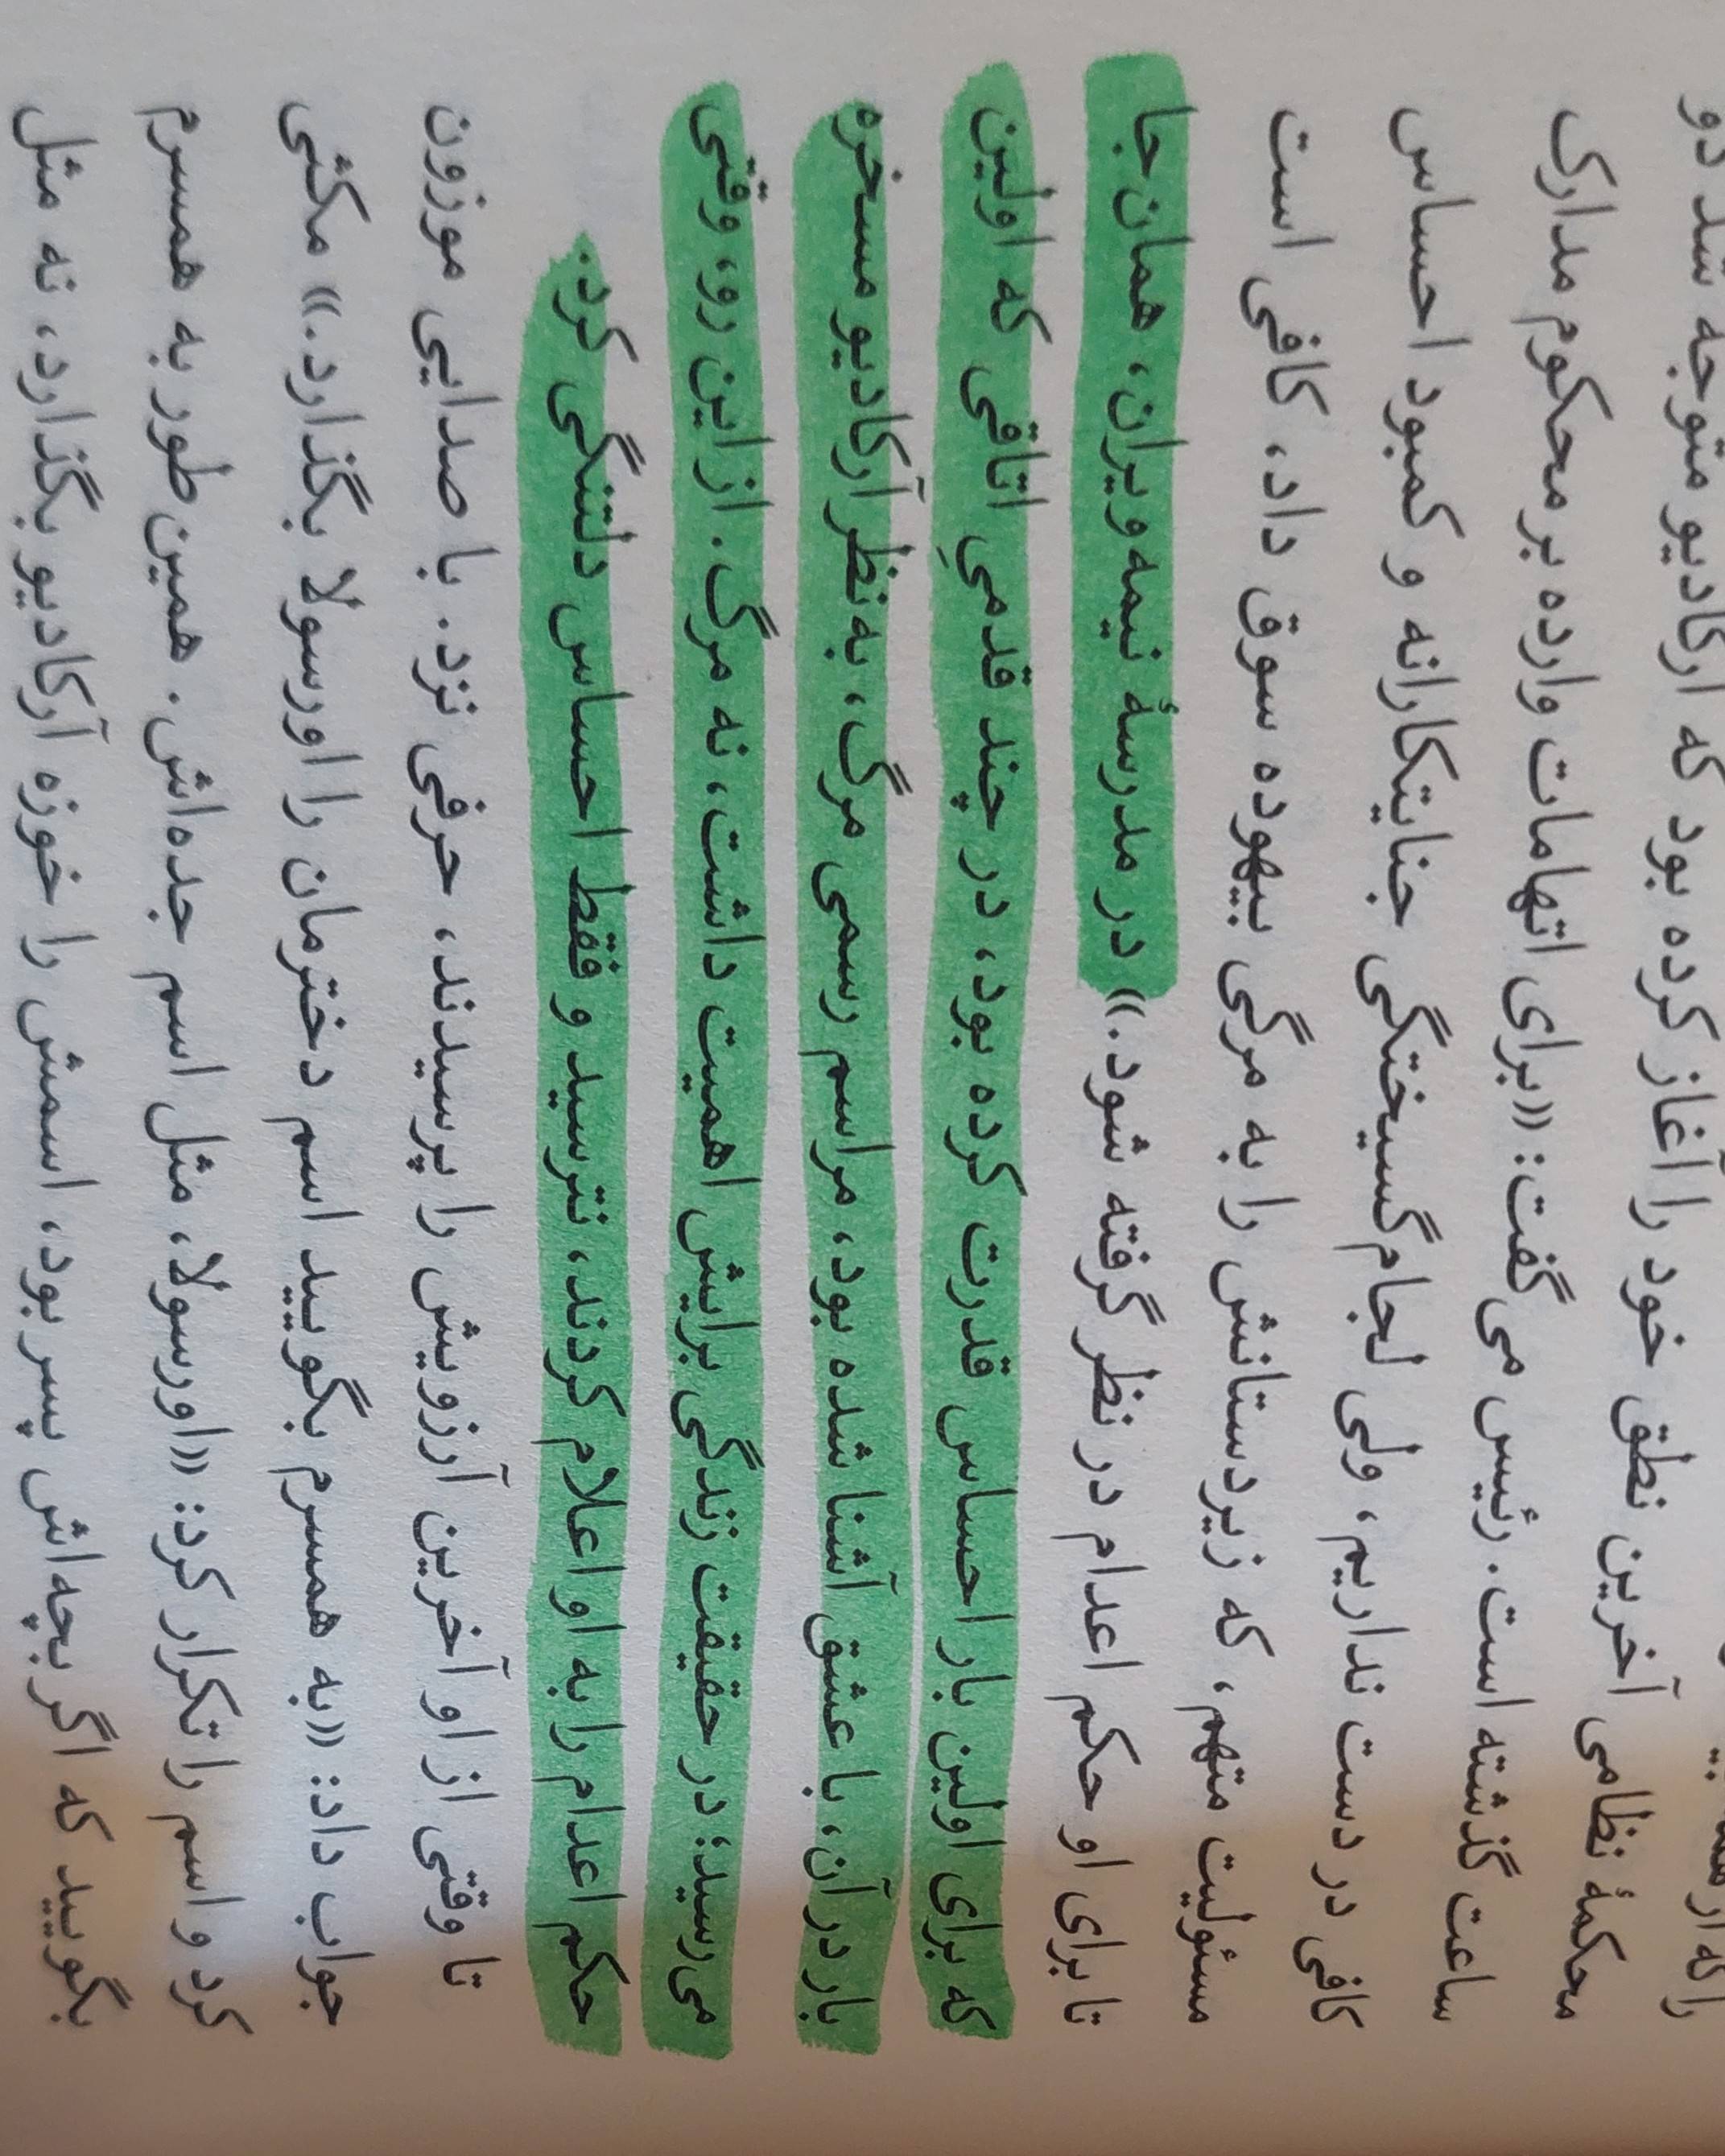 محکمهٔ نظامی آخرین نطق خود را آغاز کرده بود که آرکادیو متوجه شد دو
ساعت گذشته است. رئیس می‌گفت: «برای اتهامات وارده بر محکوم مدارک
کافی در دست نداریم، ولی لجام‌گسیختگی جنایتکارانه و کمبود احساس
مسئولیت متهم، که زیردستانش را به مرگی بیهوده سوق داد، کافی است
تا برای او حکم اعدام در نظر گرفته شود.» در مدرسهٔ نیمه‌ویران، همان‌جا
که برای اولین بار احساس قدرت کرده بود، در چند قدمیِ اتاقی که اولین
بار در آن، با عشق آشنا شده بود، مراسم رسمی مرگ، به‌نظر آرکادیو مسخره
می‌رسید؛ در حقیقت زندگی برایش اهمیت داشت، نه مرگ. از این رو، وقتی
حکم اعدام را به او اعلام کردند، نترسید و فقط احساس دلتنگی کرد.
تا وقتی از او آخرین آرزویش را پرسیدند، حرفی نزد. با صدایی موزون
جواب داد: «به همسرم بگویید اسم دخترمان را اورسولا بگذارد.» مکثی
کرد و اسم را تکرار کرد: «اورسولا، مثل اسم جده‌اش. همین‌طور به همسرم
بگویید که اگر بچه‌اش پسر بود، اسمش را خوزه آرکادیو بگذارد، نه مثل